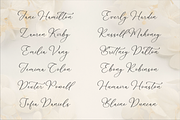 Jane Hamilton
Lauren Kirby
Emilia Vang
Jemima Tolen
Dexter Powell
Sofia Daniels
Everly Harden
Russell Mahoney
Brittany Dutton
Ebony Robinson
Hamama Houston
Blaine Duncan